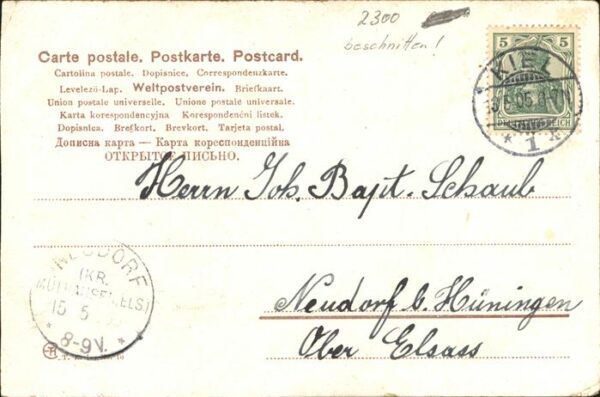 2300
beschnitten!
Carte postale. Postkarte. Postcard.
Cartolina postale. Dopisnice. Correspondenzkarte.
Levelező-Lap. Weltpostverein. Briefkaart.
Union postale universelle. Unione postale universale.
Karta korespondencyjna Korespondenční listek.
Dopisnica. Brefkort. Brevkort. Tarjeta postal.
Дописна карта — Карта кореспонденційна
ОТКРЫТОЕ ПИСЬМО.
5 5
KIEL
05
* 1 *
Herrn Joh. Bapt. Schaub
Neudorf b. Hüningen
Ober Elsass
NEUDORF
(KR.
MÜLHAUSEN ELS)
15 5
* 8-9V. *